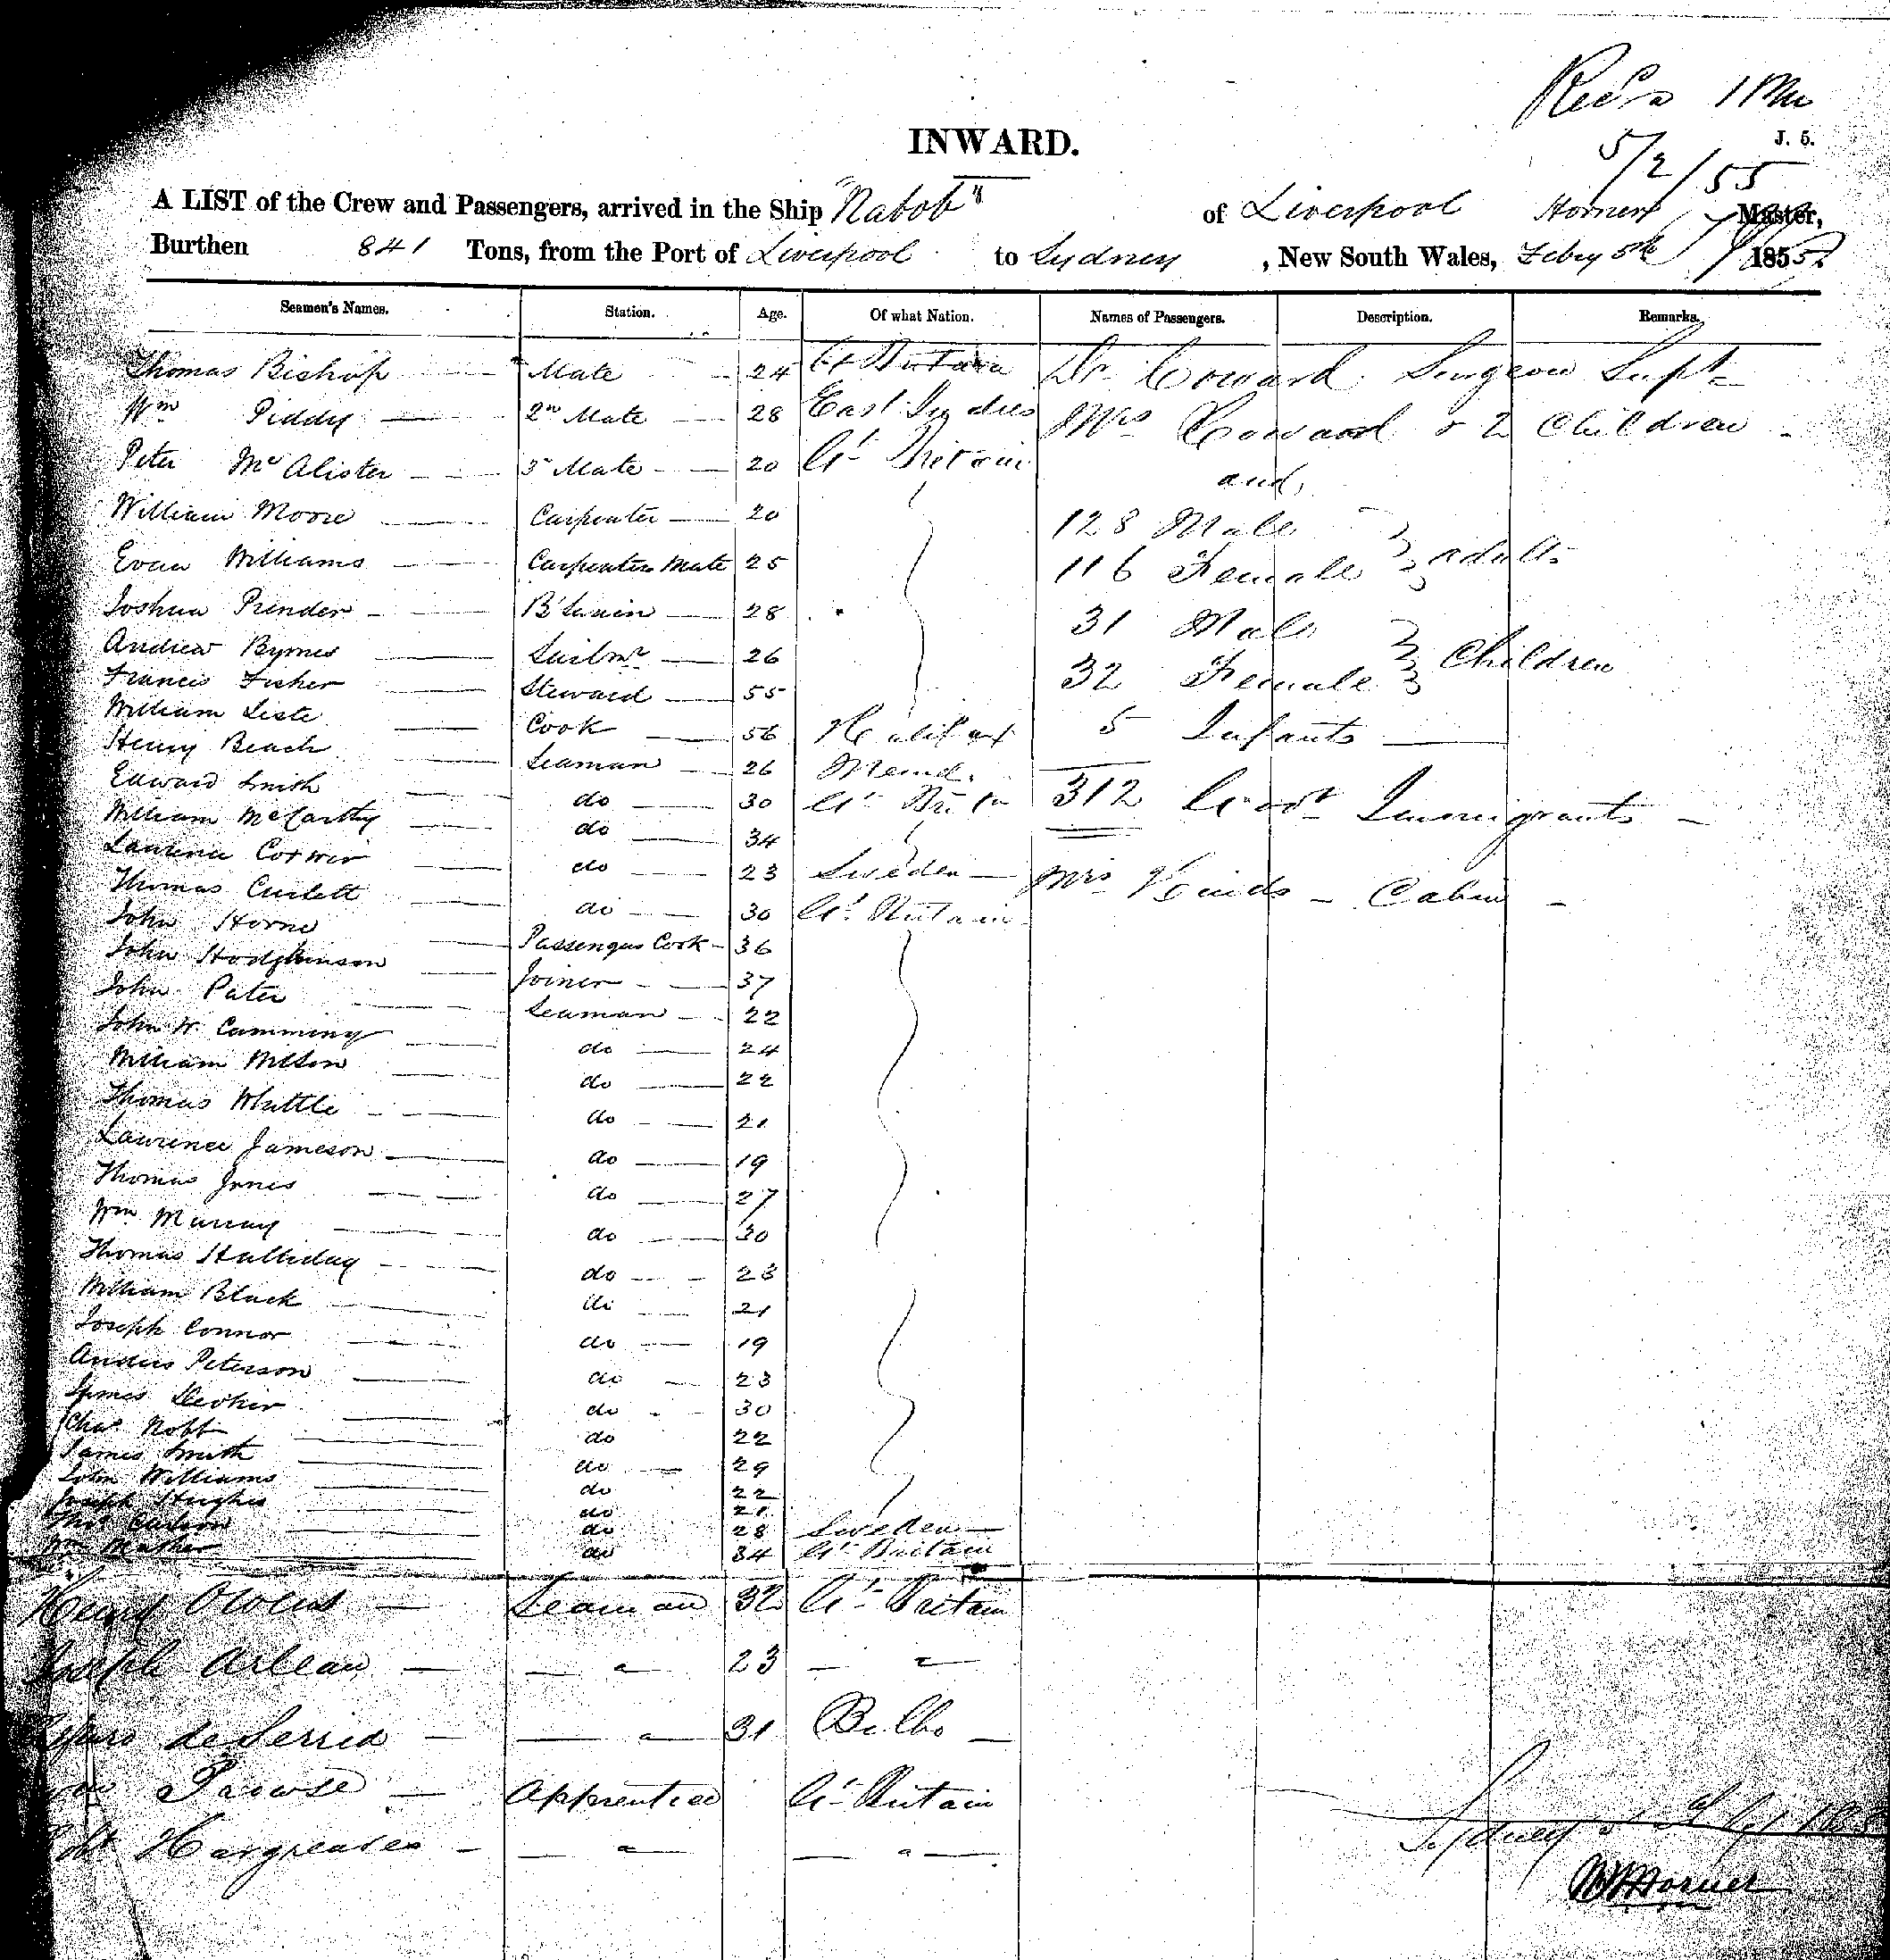 1 Pm
INWARD.
J. 5.
5/2/55
A LIST of the Crew and Passengers, arrived in the Ship "Nabob" of Liverpool Horner Master,
Burthen 841 Tons, from the Port of Liverpool to Sydney, New South Wales, Feby 5th 1855
Seamen's Names. Station. Age. Of what Nation. Names of Passengers. Description. Remarks.
Thomas Bishop Mate 24 Gt Britain Dr. Coward Surgeon Supt
Wm Piddy 2nd Mate 28 East Indies Mrs Coward & 2 Children
Peter McAlister 3rd Mate 20 Gt Britain and
William Moore Carpenter 20 128 Male
Evan Williams Carpenters Mate 25 116 Female Adults
Joshua Prinder 28 31 Male
Andrew Byrnes Sailmr 26 Children
Francis Fisher Steward 55 32 Female
William Liste Cook 56 Halifax 5 Infants
Henry Beach Seaman 26
Edward Smith do 30 Gt Britn 312 Govt Immigrants
William McCarthy do 34
Laurence do 23 Sweden Mrs Cabin
Thomas do 30 Gt Britain
John Horne Passengers Cook 36
John Hodghinson Joiner 37
John Pater Seaman 22
John W. Camming do 24
William Wilson do 22
Thomas Whittle do 21
Lawrence Jameson do 19
Thomas Jones do 27
Wm Murray do 30
Thomas Halliday do 23
William Black do 21
Joseph Connor do 19
Anders Peterson do 23
James do 30
Chas do 22
James Smith do 29
John Williams do 22
Joseph Hughes do 21
Thos Carlson do 28 Sweden
Wm Mather do 34 Gt Britain
Henry Seaman 32 Gt Britain
Joseph " 23 "
de " 31 Bilbo
Prowse Apprentice Gt Britain
Hargreaves " "
Sydney
W Horner